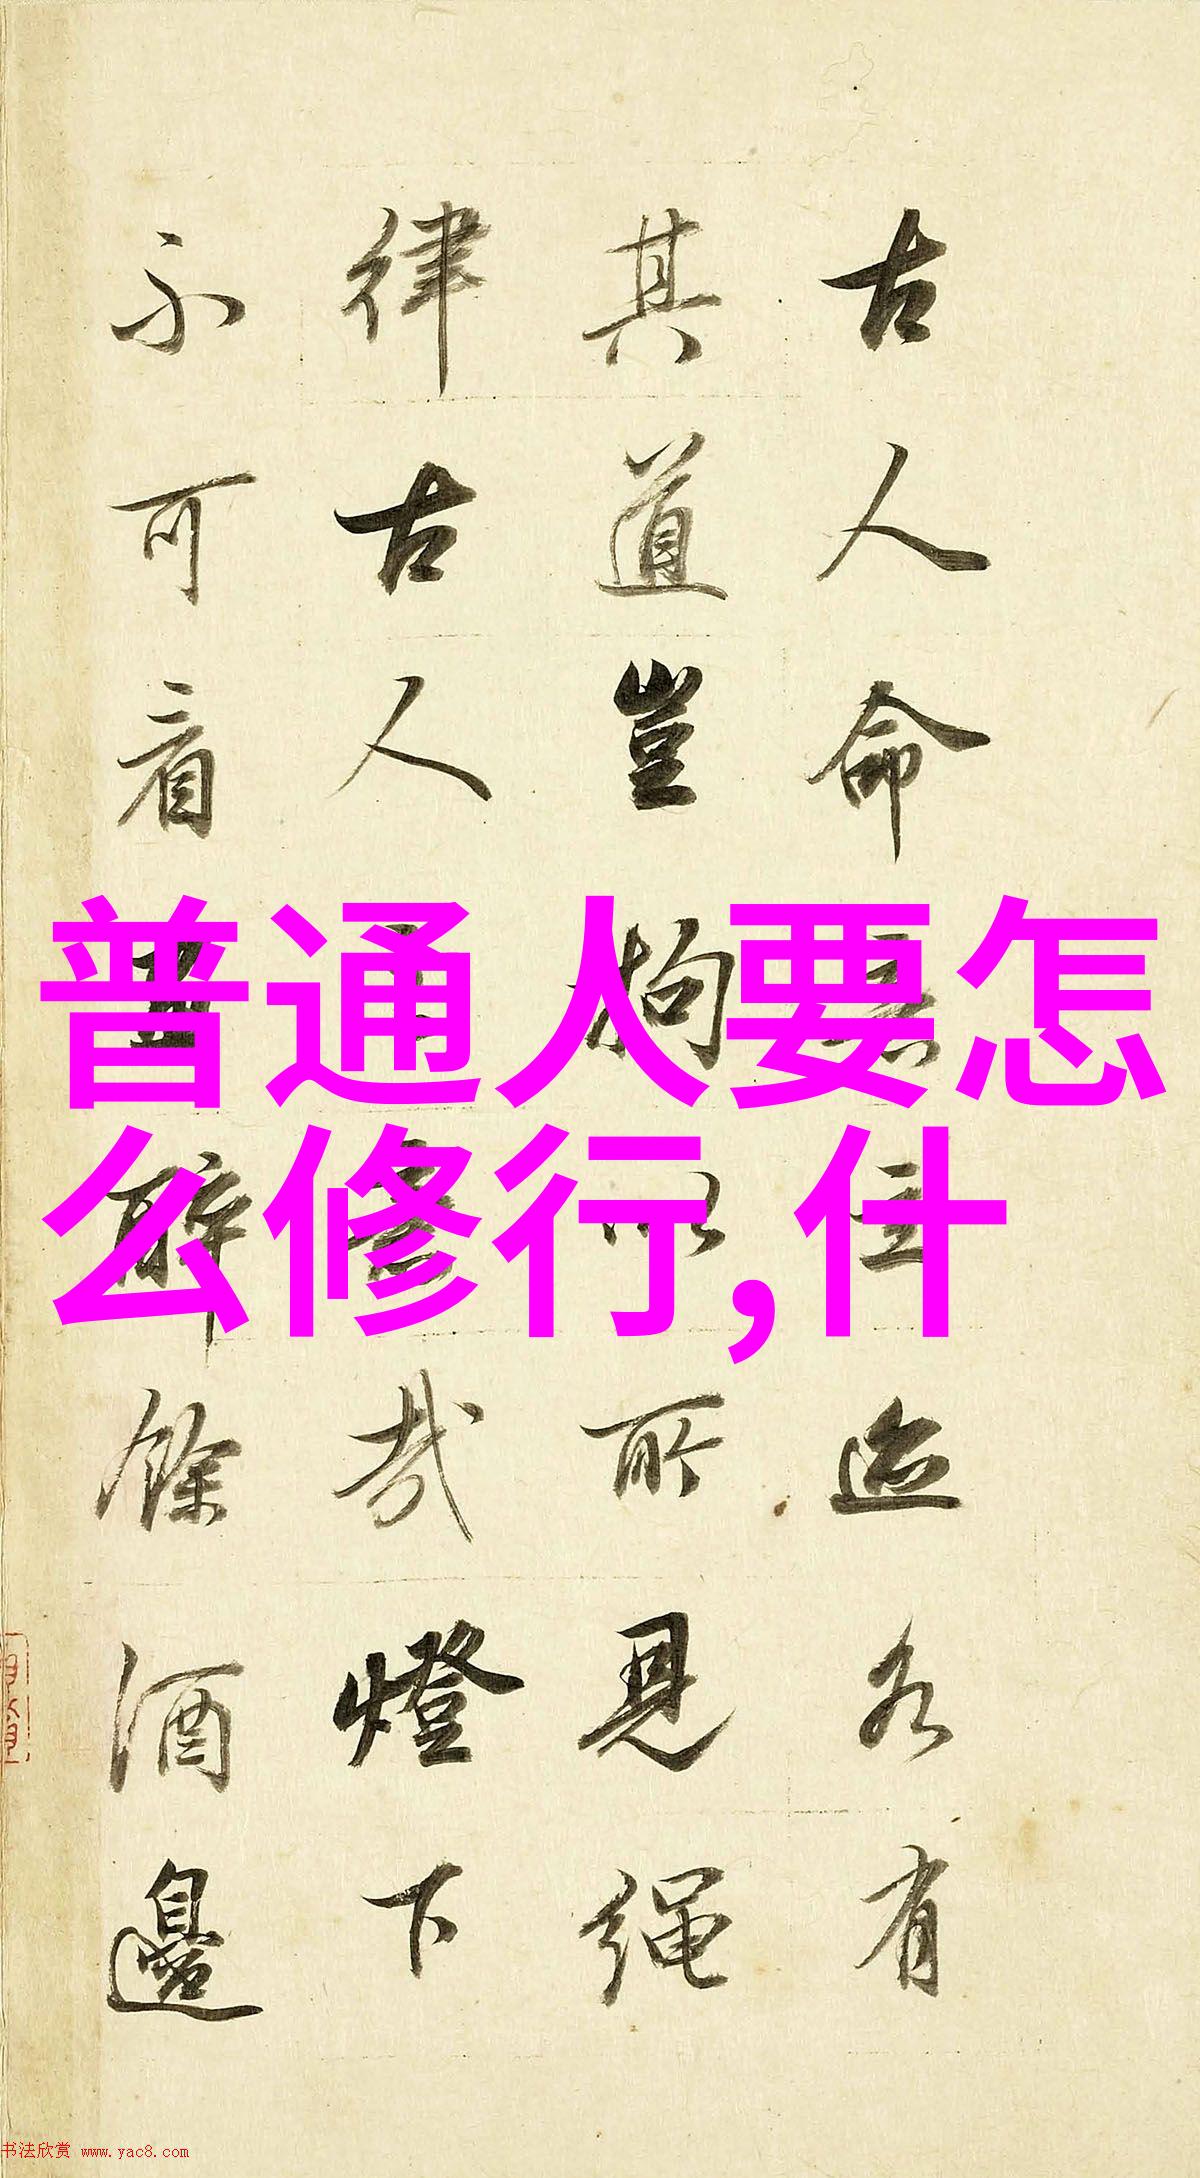 古人命迹各有
其道豈拘所見繩
律古人哉燈下
不可看餘酒邊
普通人要怎
么修行,什
书法欣赏 www.yac8.com